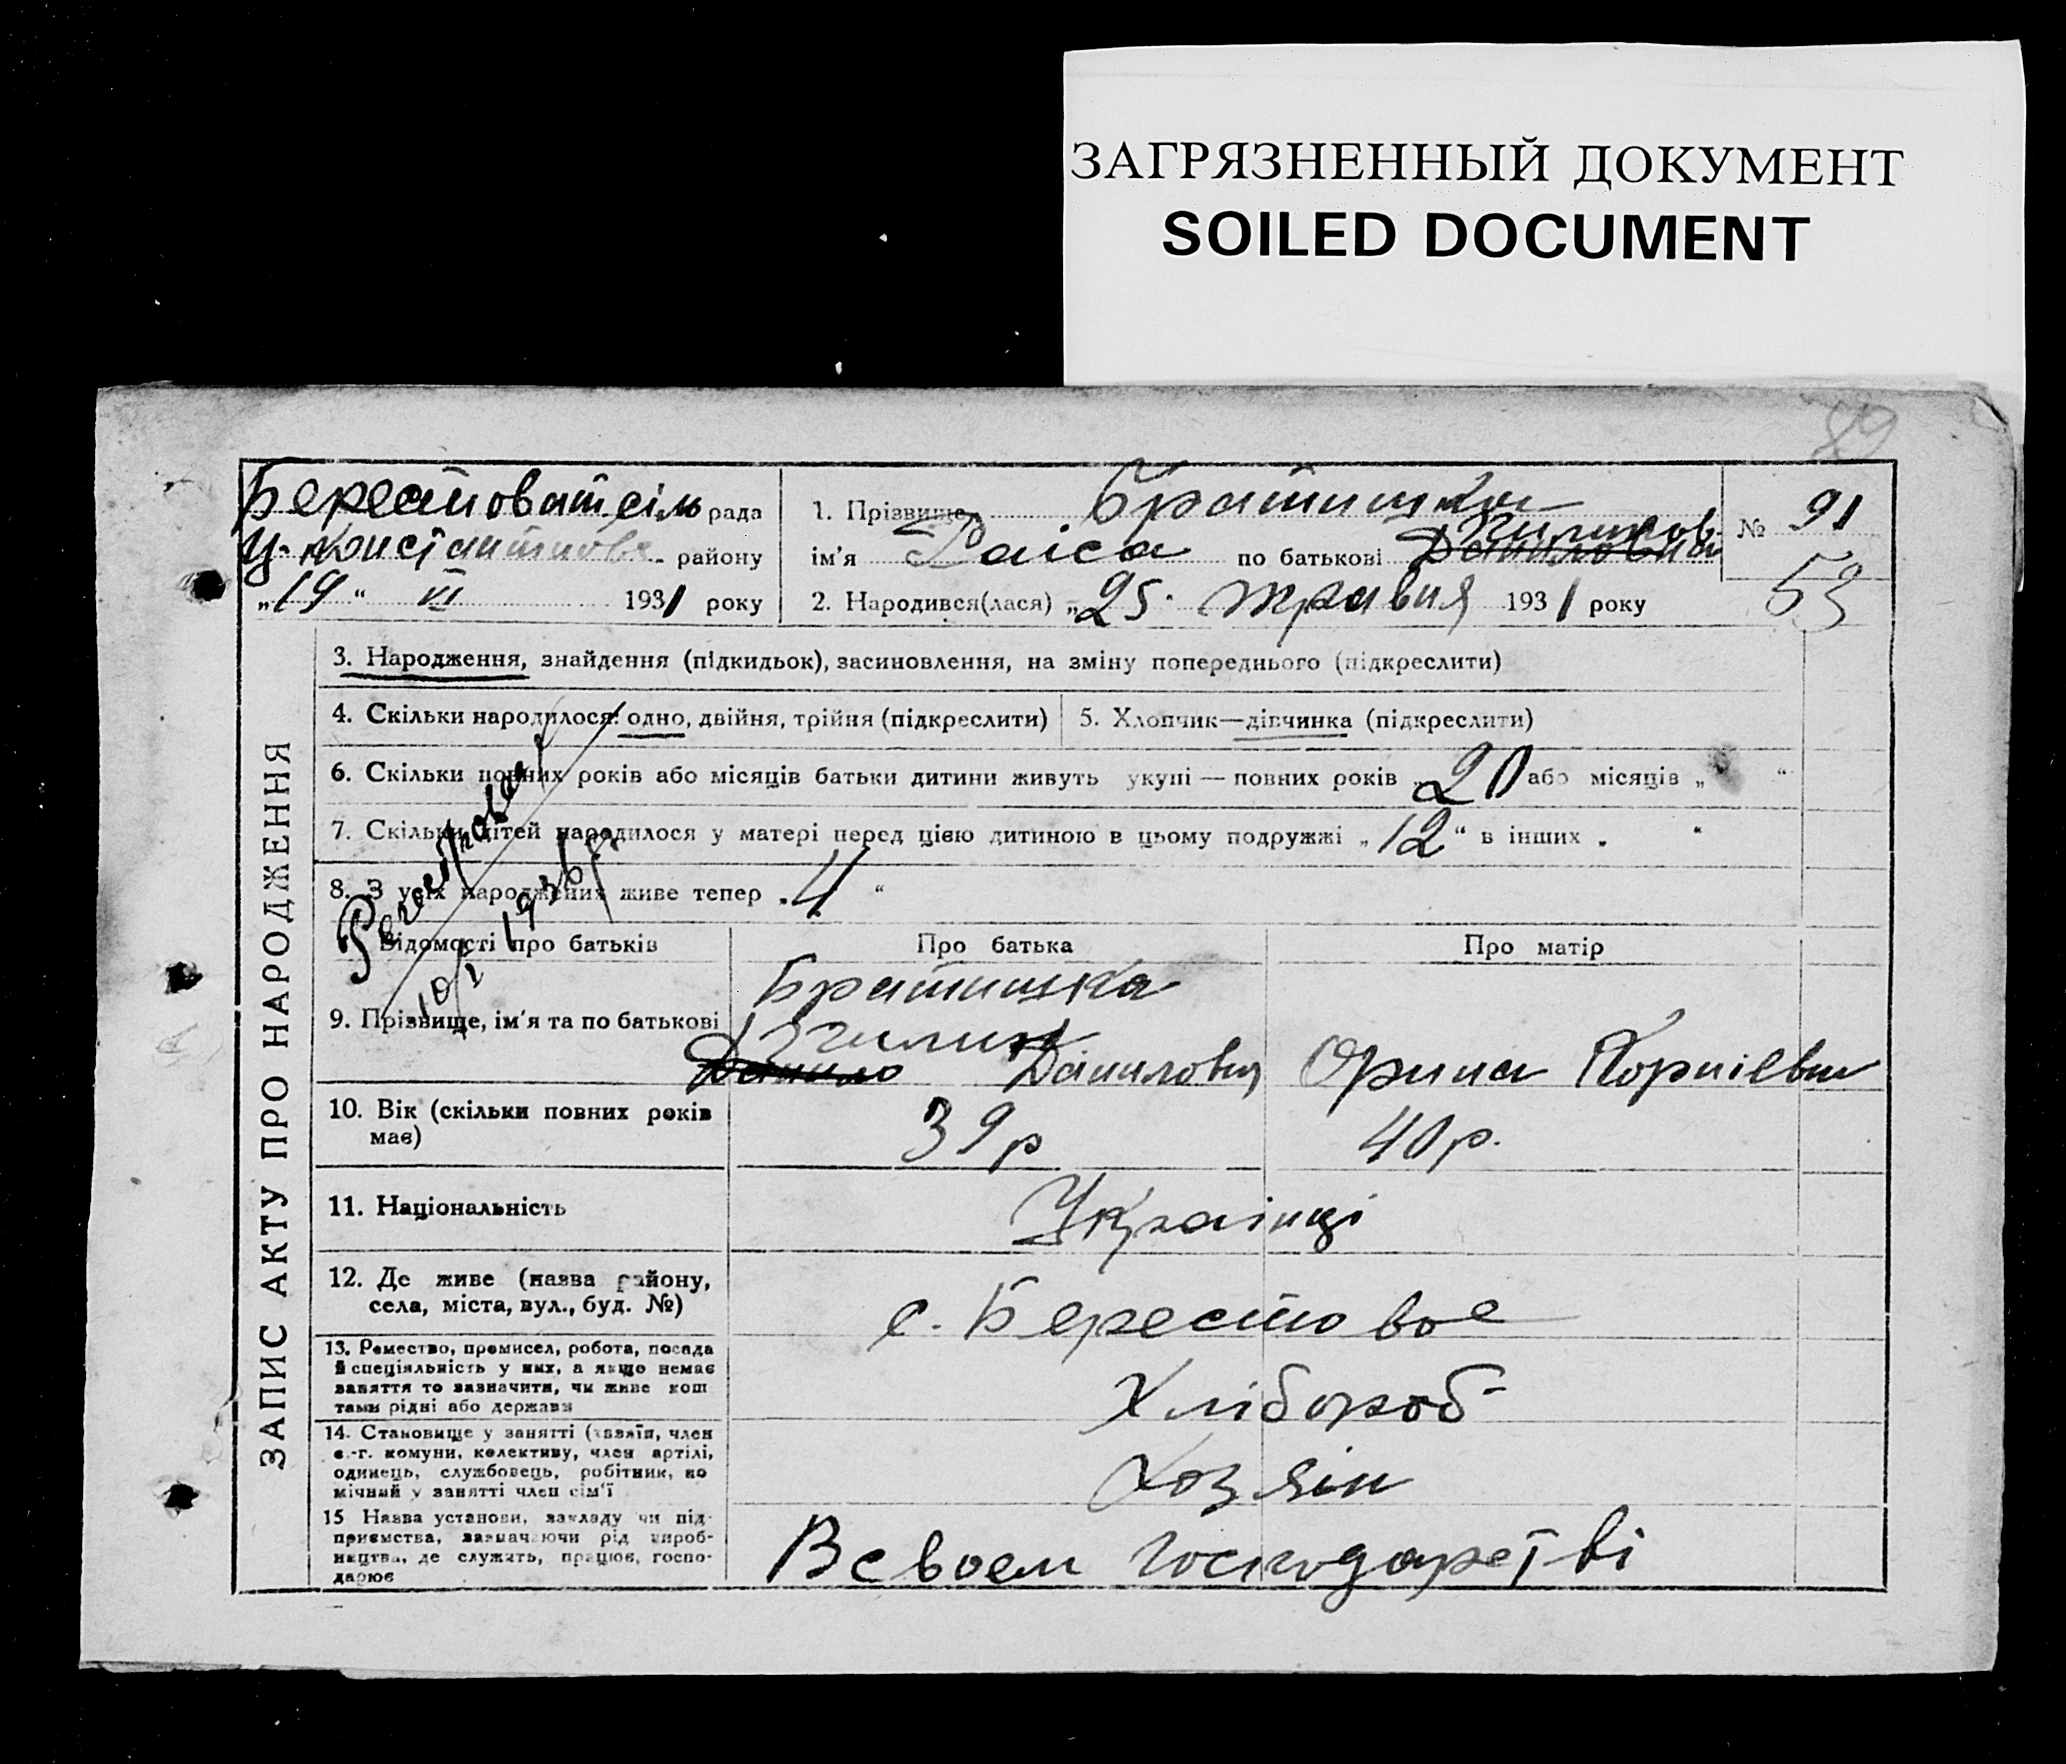 ЗАГРЯЗНЕННЫЙ ДОКУМЕНТ
SOILED DOCUMENT
89
Берестоват сіль рада
Ц. Константинове району
„19“ VI 1931 року
1. Прізвище Братишка
ім'я Раіса по батькові Даниловна
2. Народився(лася) „25. травня 1931 року
№ 91
53
ЗАПИС АКТУ ПРО НАРОДЖЕННЯ
3. Народження, знайдення (підкидьок), засиновлення, на зміну попереднього (підкреслити)
4. Скільки народилося: одно, двійня, трійня (підкреслити)
5. Хлопчик—дівчинка (підкреслити)
6. Скільки повних років або місяців батьки дитини живуть укупі — повних років „20 або місяців „ “
7. Скільки дітей народилося у матері перед цією дитиною в цьому подружжі „12“ в інших „ “
8. З усіх народжених живе тепер „4“
10/I 1936 р
Відомості про батьків
Про батька
Про матір
9. Прізвище, ім'я та по батькові
Братишка
Данило Данилович
Орина Корніевна
10. Вік (скільки повних років має)
39 р
40 р.
11. Національність
Украінці
12. Де живе (назва району,
села, міста, вул., буд. №)
с. Берестовое
13. Ремество, промисел, робота, посада
й спеціяльність у них, а якщо немає
заняття то зазначити, чи живе кош
тами рідні або держави
Хлібороб
14. Становище у занятті (хазяїн, член
с.-г. комуни, колективу, член артілі,
одинець, службовець, робітник, по
мічний у занятті член сім'ї
Хозяін
15 Назва установи, закладу чи під-
приємства, зазначаючи рід вироб-
ництва, де служить, працює, госпо-
дарює
В своем господарстві